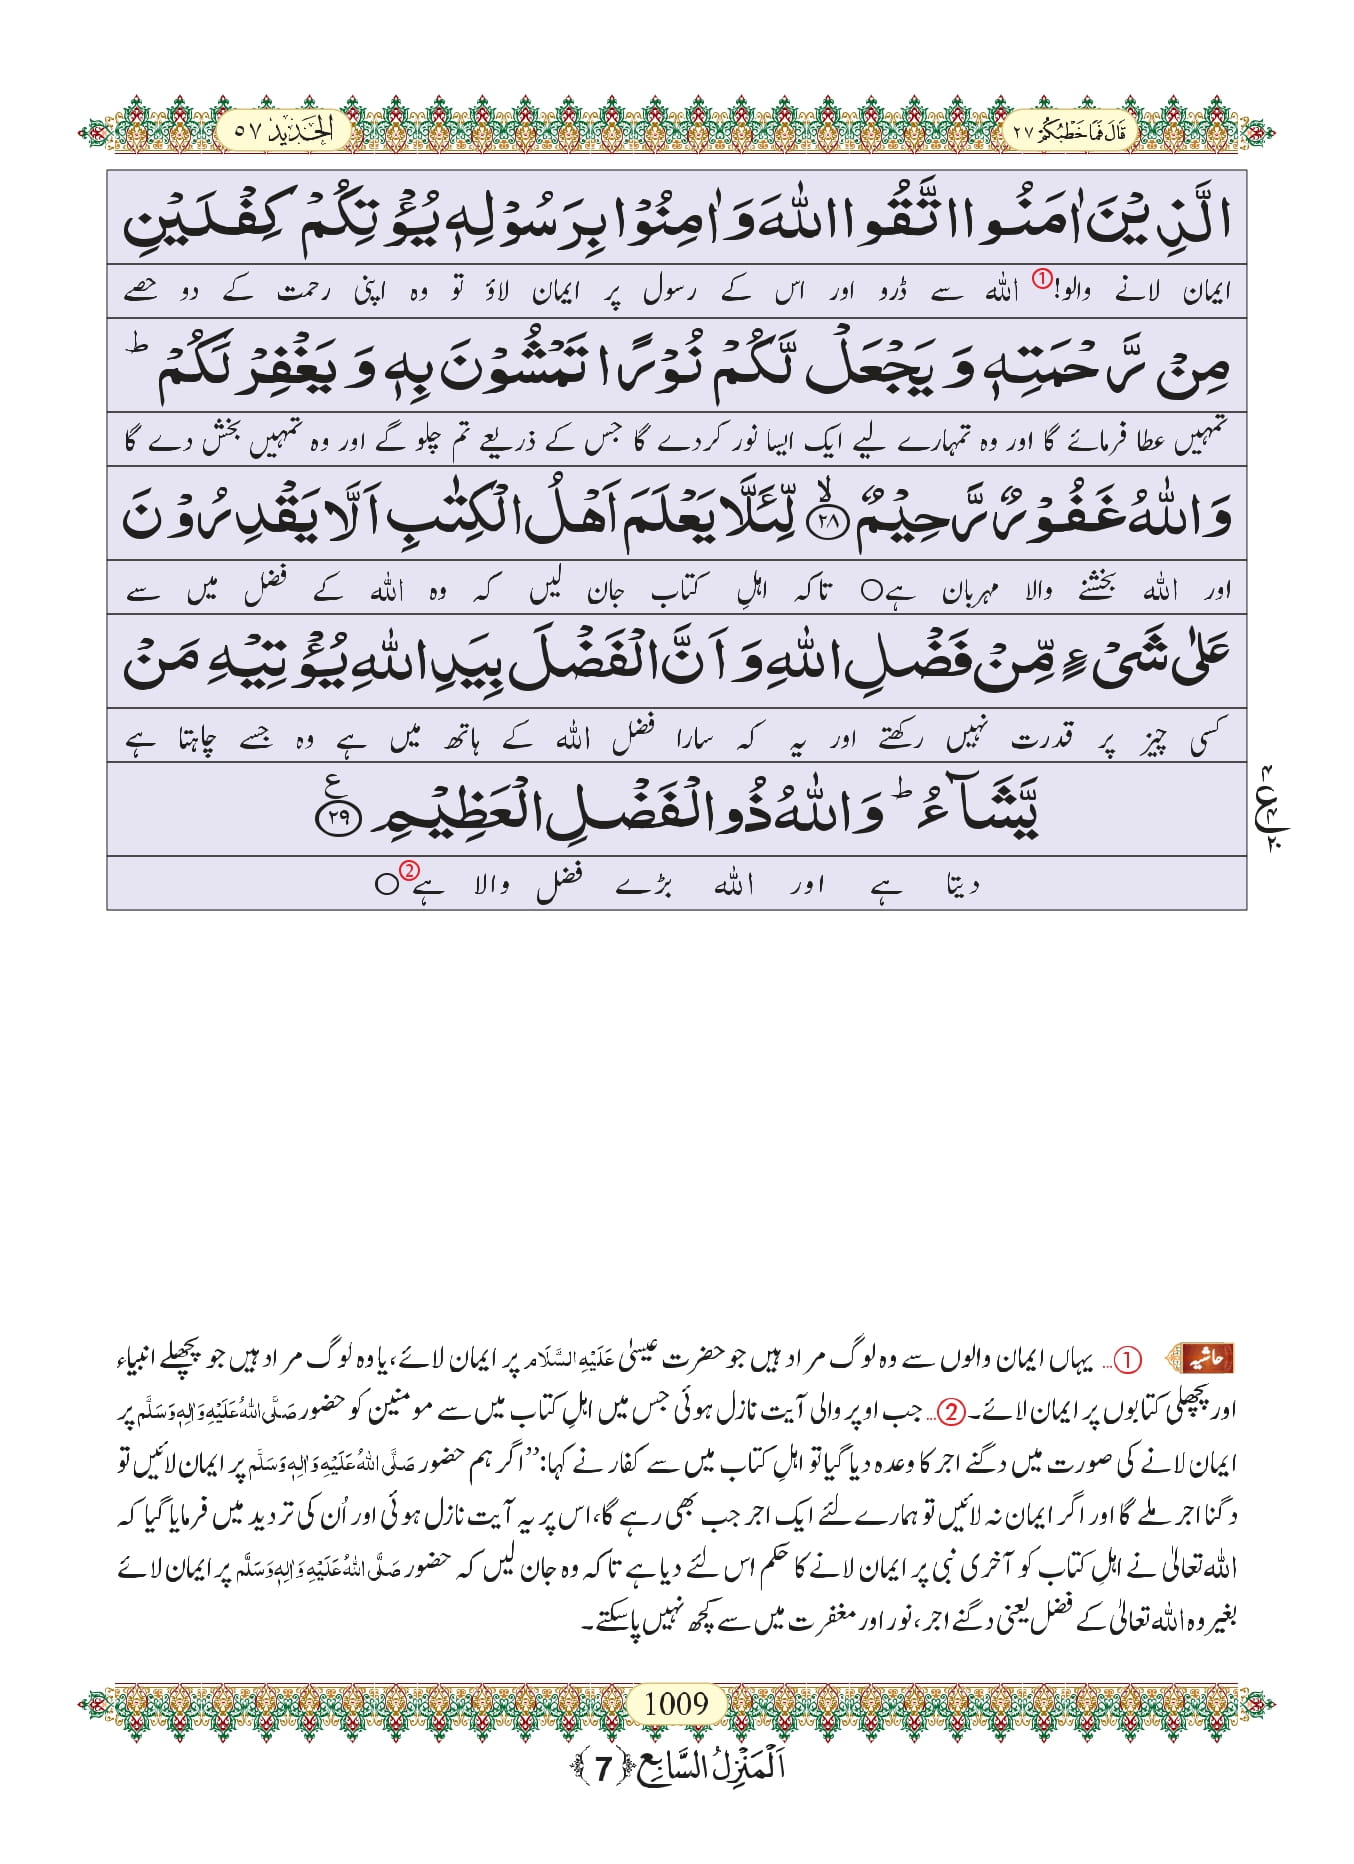 قَالَ فَمَا خَطْبُكُمْ ٢٧
الْحَدِيْد ٥٧
الَّذِيْنَ اٰمَنُوا اتَّقُوا اللّٰهَ وَ اٰمِنُوْا بِرَسُوْلِهٖ يُؤْتِكُمْ كِفْلَيْنِ
ایمان لانے والو!① اللہ سے ڈرو اور اس کے رسول پر ایمان لاؤ تو وہ اپنی رحمت کے دو حصے
مِنْ رَّحْمَتِهٖ وَ يَجْعَلْ لَّكُمْ نُوْرًا تَمْشُوْنَ بِهٖ وَ يَغْفِرْ لَكُمْ ؕ
تمہیں عطا فرمائے گا اور وہ تمہارے لیے ایک ایسا نور کردے گا جس کے ذریعے تم چلو گے اور وہ تمہیں بخش دے گا
وَ اللّٰهُ غَفُوْرٌ رَّحِيْمٌ ۙ﴿٢٨﴾ لِّئَلَّا يَعْلَمَ اَهْلُ الْكِتٰبِ اَلَّا يَقْدِرُوْنَ
اور اللہ بخشنے والا مہربان ہے○ تاکہ اہلِ کتاب جان لیں کہ وہ اللہ کے فضل میں سے
عَلٰى شَيْءٍ مِّنْ فَضْلِ اللّٰهِ وَ اَنَّ الْفَضْلَ بِيَدِ اللّٰهِ يُؤْتِيْهِ مَنْ
کسی چیز پر قدرت نہیں رکھتے اور یہ کہ سارا فضل اللہ کے ہاتھ میں ہے وہ جسے چاہتا ہے
يَّشَآءُ ؕ وَ اللّٰهُ ذُو الْفَضْلِ الْعَظِيْمِ ﴿٢٩﴾ ع
دیتا ہے اور اللہ بڑے فضل والا ہے②○
حاشیہ ①... یہاں ایمان والوں سے وہ لوگ مراد ہیں جو حضرت عیسیٰ عَلَیْہِ السَّلَام پر ایمان لائے،یا وہ لوگ مراد ہیں جو پچھلے انبیاء
اور پچھلی کتابوں پر ایمان لائے۔②... جب اوپر والی آیت نازل ہوئی جس میں اہلِ کتاب میں سے مومنین کو حضور صَلَّی اللہُ عَلَیْہِ وَاٰلِہٖ وَسَلَّم پر
ایمان لانے کی صورت میں دگنے اجر کا وعدہ دیا گیا تو اہلِ کتاب میں سے کفار نے کہا:”اگر ہم حضور صَلَّی اللہُ عَلَیْہِ وَاٰلِہٖ وَسَلَّم پر ایمان لائیں تو
دگنا اجر ملے گا اور اگر ایمان نہ لائیں تو ہمارے لئے ایک اجر جب بھی رہے گا،اس پر یہ آیت نازل ہوئی اور اُن کی تردید میں فرمایا گیا کہ
اللہ تعالیٰ نے اہلِ کتاب کو آخری نبی پر ایمان لانے کا حکم اس لئے دیا ہے تاکہ وہ جان لیں کہ حضور صَلَّی اللہُ عَلَیْہِ وَاٰلِہٖ وَسَلَّم پر ایمان لائے
بغیر وہ اللہ تعالیٰ کے فضل یعنی دگنے اجر،نور اور مغفرت میں سے کچھ نہیں پاسکتے۔
1009
اَلْمَنْزِلُ السَّابِع ﴿7﴾